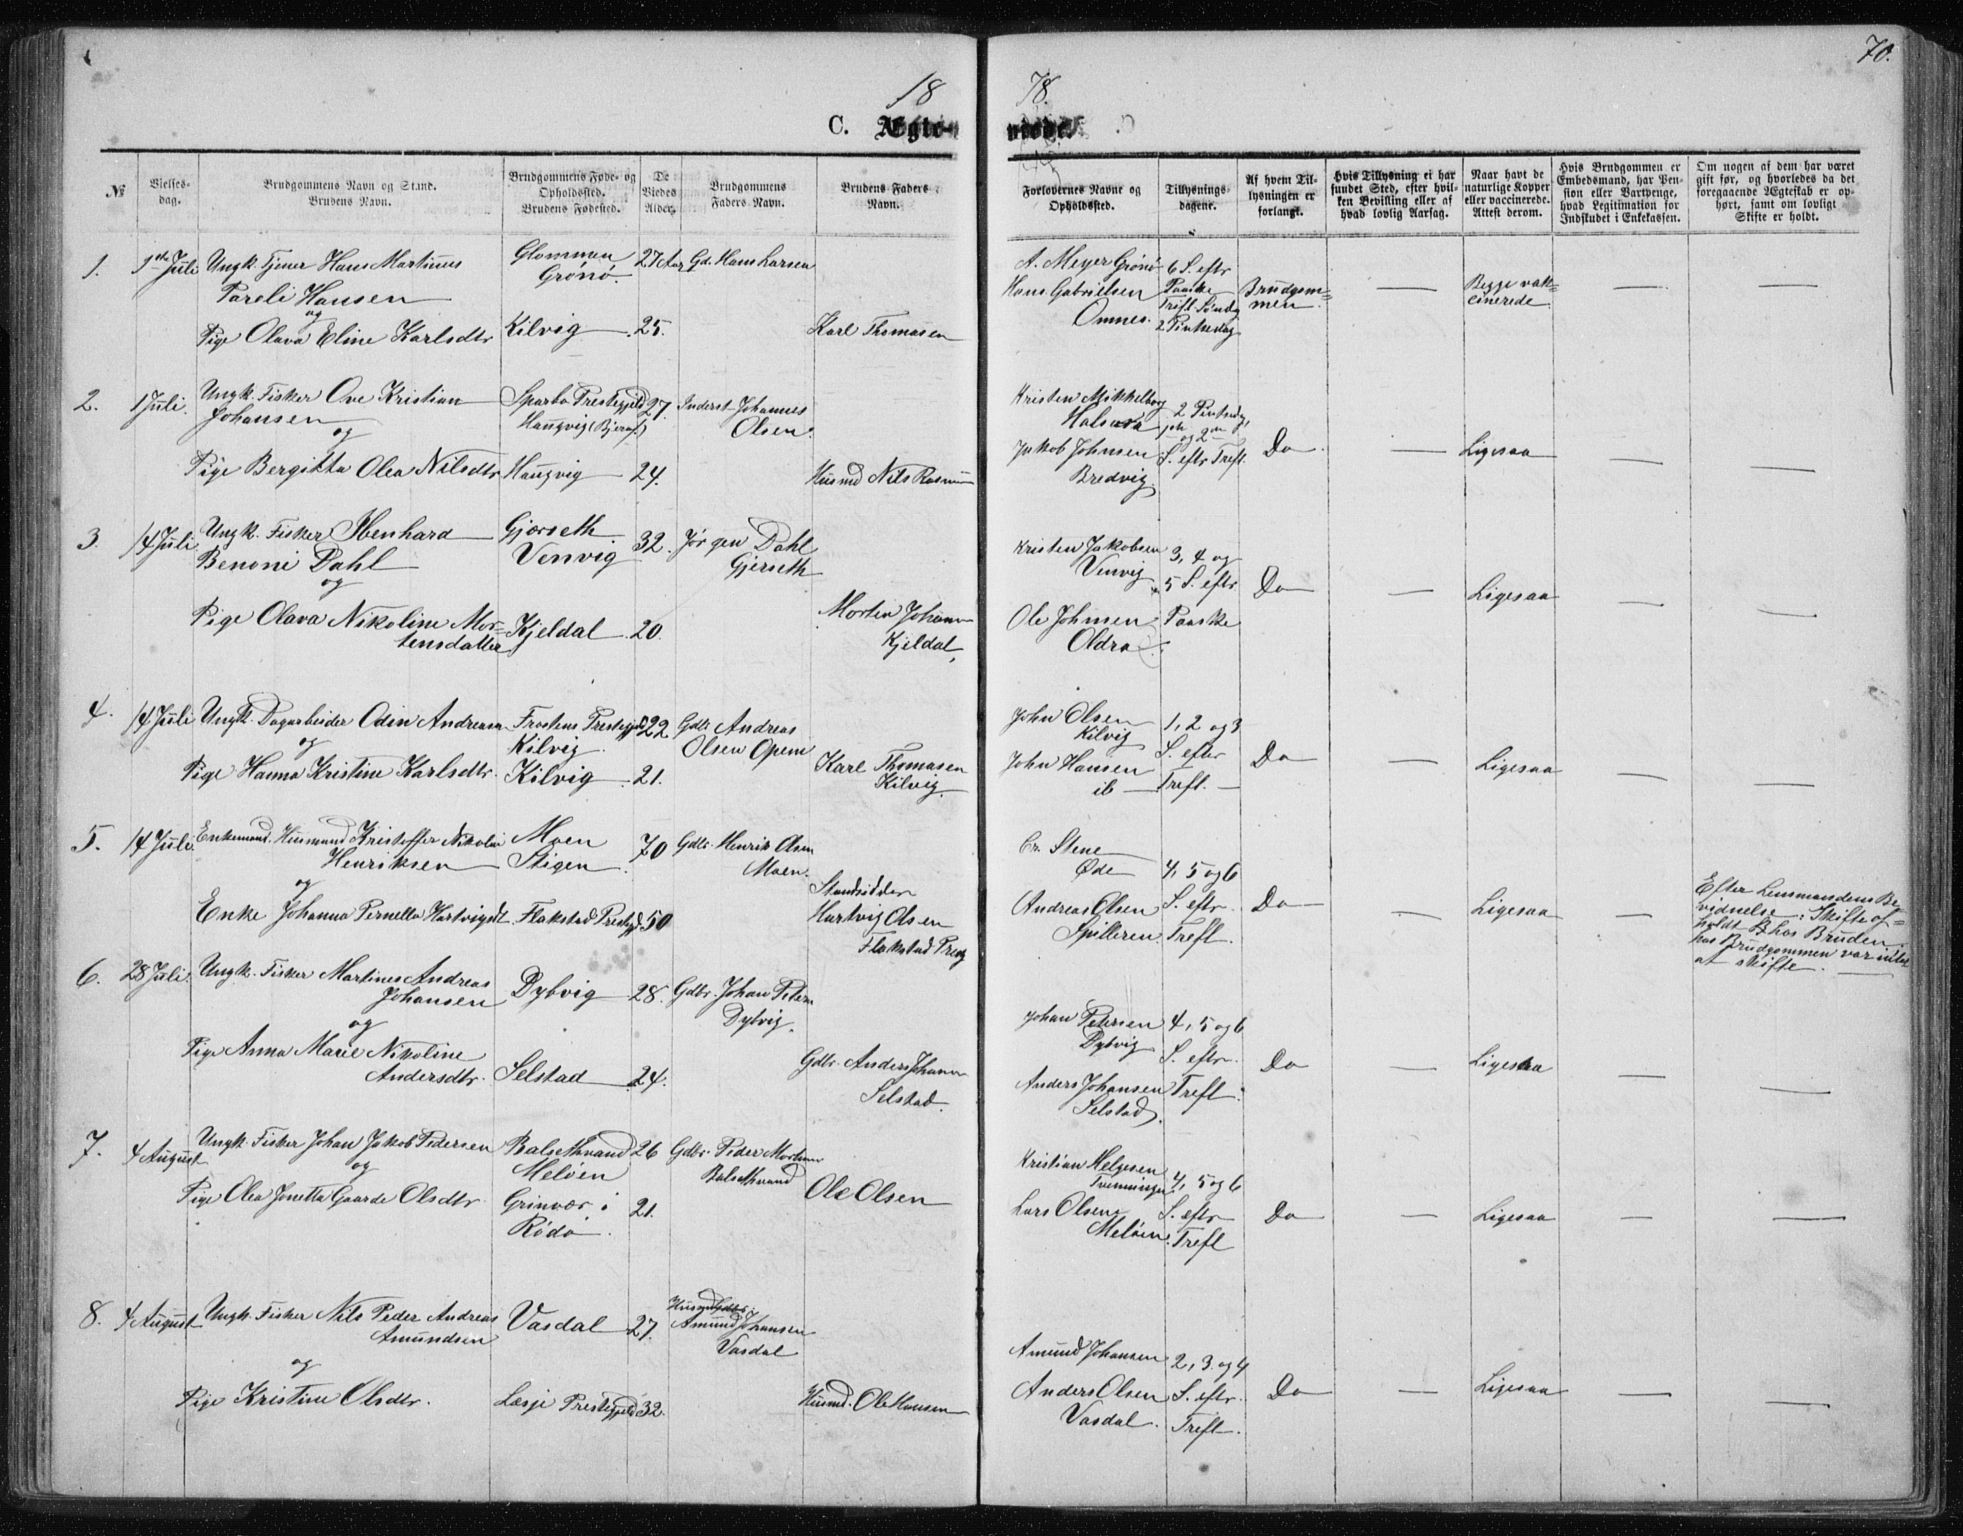 70.
18 78.
C. Ægte- viede.
№
Vielses-
dag.
Brudgommens Navn og Stand.
Brudens Navn.
Brudgommens Føde- og
Opholdssted.
Brudens Fødested.
De
Viedes
Alder.
Brudgommens
Faders Navn.
Brudens Faders
Navn.
Forlovernes Navne og
Opholdssted.
Tillysnings-
dagene.
Af hvem Til-
lysningen er
forlangt.
Hvis Tillysning ei har
fundet Sted, efter hvil-
ken Bevilling eller af
hvad lovlig Aarsag.
Naar havt de
naturlige Kopper
eller vaccinerede.
Attest derom.
Hvis Brudgommen er
Embedsmand, har Pen-
sion eller Vartpenge,
hvad Legitimation for
Indskudet i Enkekassen.
Om nogen af dem har været
gift før, og hvorledes da det
foregaaende Ægteskab er op-
hørt, samt om lovligt
Skifte er holdt.
1. 1ste Juli Ungk. Tjener Hans Martinus
Pareli Hansen
og
Pige Olava Eline Karlsdtr
Glommen
Grønø.
Kilvig
27 Aar
25.
Gd. Hans Larsen
Karl Thomasen
A. Meyer Grønø
Hans Gabrielsen
Omnes.
6 S. eftr
Paaske
Treft. Søndg
2 Pintsedag
Brudgom=
men.
Begge vak=
cinerede
2. 1 Juli. Ungk. Fisker Ove Kristian
Johansen
og
Pige Bergitta Olea Nilsdtr
Sparbo Prestegjeld
Haugvig (Bjeraf)
Haugvig
27.
24.
Inderst Johannes
Olsen.
Husmd Nils Rasm
Kristen Mikkelborg
Halsaa
Jakob Johnsen
Bredvig
2 Pintsedg
1ste og 2den
S. eftr Treft.
Do
Ligesaa
3. 14 Juli. Ungk. Fisker Ibenhard
Benoni Dahl
og
Pige Olava Nikoline Mor=
tensdatter
Gjærseth
Venvig
Kjeldal
32.
20.
Jørgen Dahl
Gjerseth
Morten Johann
Kjeldal
Kristen Jakobsen
Venvig
Ole Johnsen
Oldra
3, 4 og
5 S. eftr
Paaske
Do
Ligesaa
4. 14 Juli Ungk. Dagarbeider Odin Andreasn
og
Pige Hanna Kristine Karlsdtr.
Frostens Prestegjeld
Kilvig.
Kilvig
22
21.
Gdbr. Andreas
Olsen Opem
Karl Thomasen
Kilvig.
John Olsen
Kilvig
John Hansen
ib
1, 2 og 3
S. efter
Treft.
Do
Ligesaa
5. 14 Juli. Enkemand. Husmand Kristoffer Nikolai
Henriksen
og
Enke Johanna Pernella Hartvigsdt.
Moen
Stigen
Flakstad Prestgjd
70
50
Gdbr. Henrik Olsen
Moen.
Strandsidder
Hartvig Olsen
Flakstad Prestg
Cr. Stene
Øde
Andreas Olsen
Spilderen.
4, 5 og 6
S. eftr.
Treft.
Do
Ligesaa
Efter Lensmandens Be
vidnelse: Skifte af=
holdt hos Bruden
hos Brudgommen var intet
at skifte.
6. 28 Juli. Ungk. Fisker Martines Andreas
Johansen
og
Pige Anna Marie Nikoline
Andersdtr.
Dybvig
Selstad
28.
24.
Gdbr. Johan Petersn
Dybvig.
Gdbr. Anders Johann
Selstad.
Johan Petersen
Dybvig
Anders Johansen
Selstad.
4, 5 og 6
S. eftr.
Treft.
Do
Ligesaa
7. 4 August Ungk. Fisker Johan Jakob Pedersen
og
Pige Olea Jonetta Gaarde Olsdtr
Balsethvand
Meløen
Grinvær i
Rødø.
26
21.
Gdbr. Peder Mortens
Balsethvand
Ole Olsen
Kristian Helgesen
Tvenningen
Lars Olsen
Meløen.
4, 5 og 6
S. eftr
Treft
Do
Ligesaa
8. 4 August Ungk. Fisker Nils Peder Andreas
Amundsen
og
Pige Kristine Olsdtr.
Vasdal
Læsje Prestegjeld
27.
32.
Husmd Gdbr.
Amund Johansen
Vasdal
Husmd. Ole Hansen
Amund Johansen
Anders Olsen
Vasdal.
2, 3. og 4
S. eftr.
Treft.
Do
Ligesaa